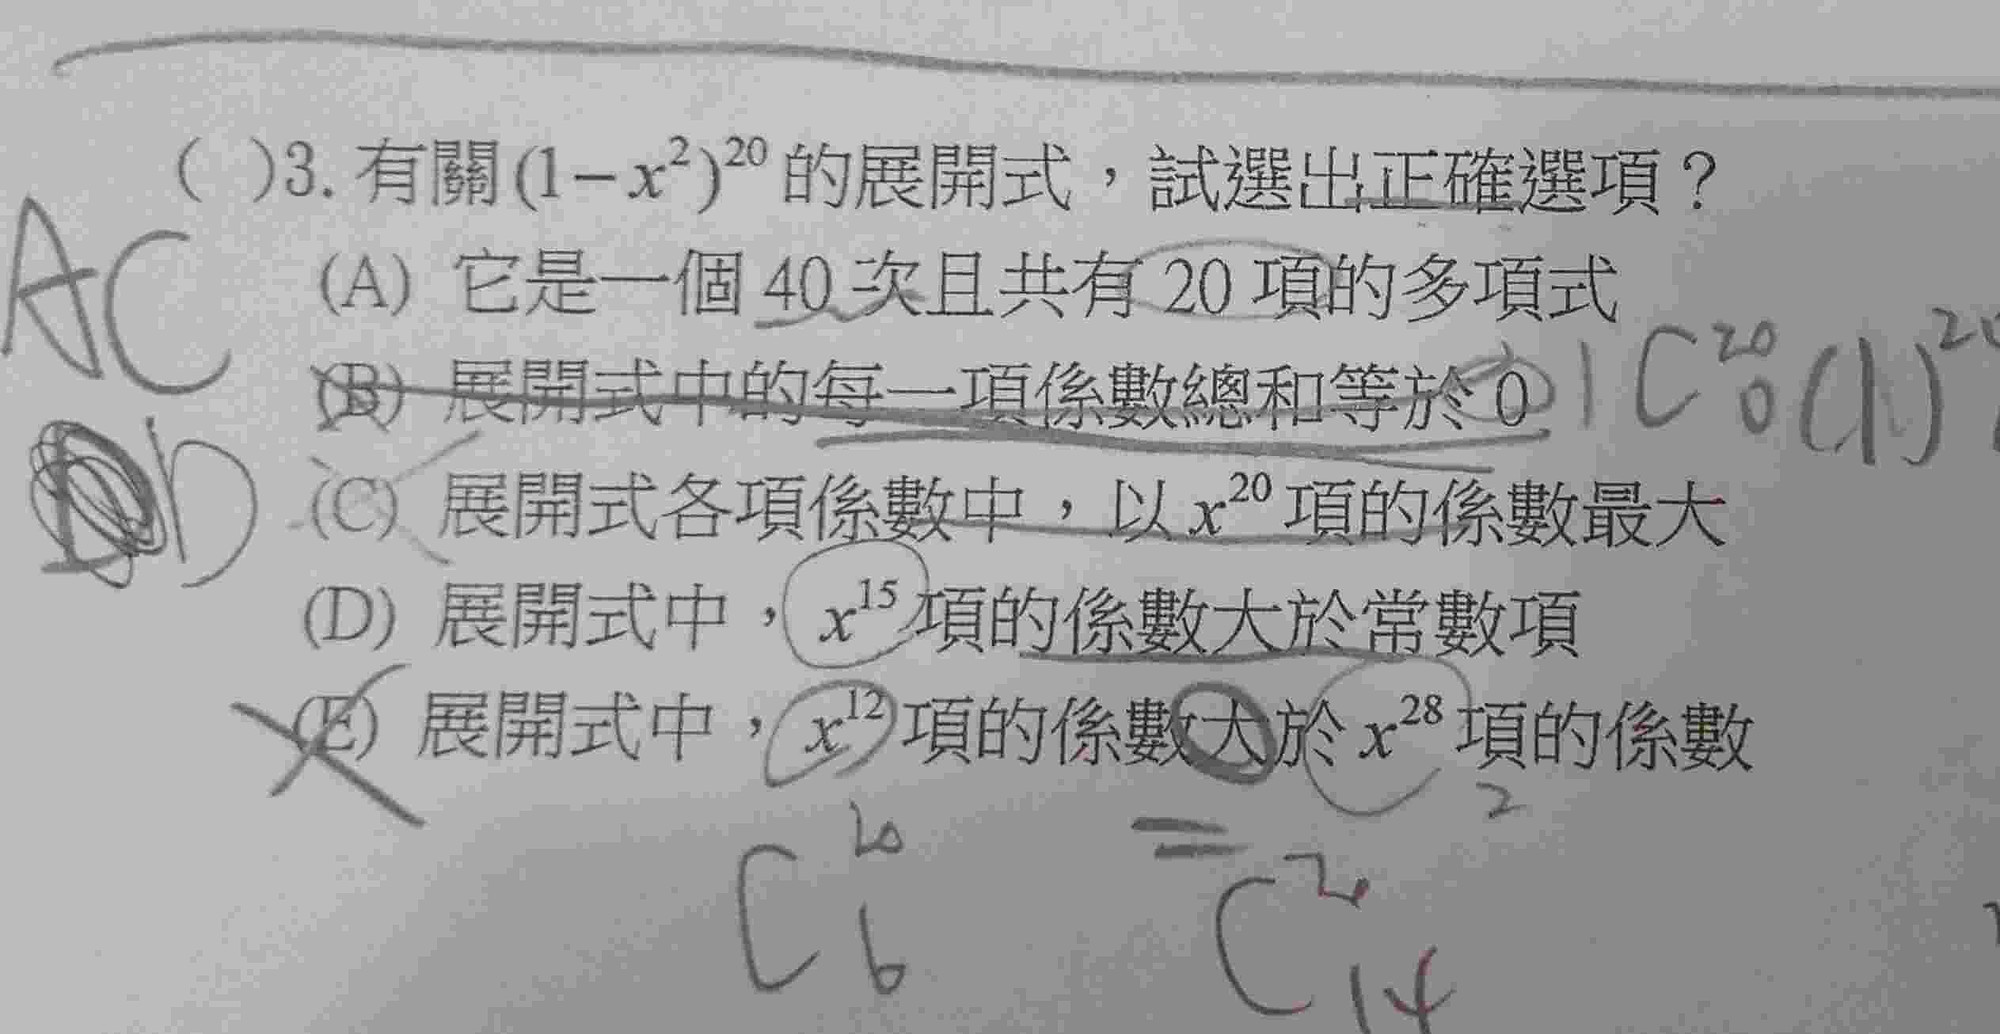 ( )3. 有關(1−x²)²⁰ 的展開式，試選出正確選項？
AC
(A) 它是一個 40 次且共有 20 項的多項式
(B) 展開式中的每一項係數總和等於 0
1 C²⁰₀ (1)²⁰
D
(C) 展開式各項係數中，以 x²⁰ 項的係數最大
(D) 展開式中，x¹⁵ 項的係數大於常數項
(E) 展開式中，x¹² 項的係數大於 x²⁸ 項的係數
2
C²⁰₆ = C²⁰₁₄